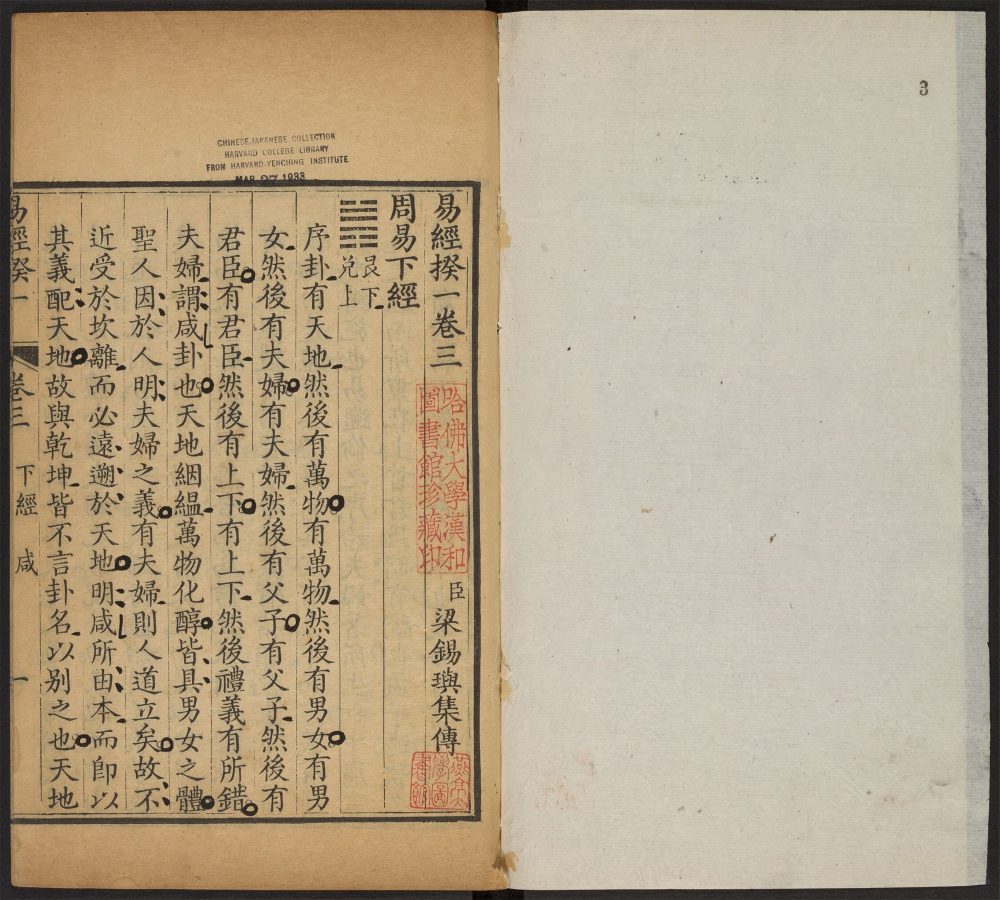 3
CHINESE-JAPANESE COLLECTION
HARVARD COLLEGE LIBRARY
FROM HARVARD-YENCHING INSTITUTE
MAR 27 1933
易經揆一卷三
哈佛大學漢和
圖書館珍藏印
臣梁錫璵集傳
周易下經
艮下
兌上
序卦有天地然後有萬物有萬物然後有男女有男
女然後有夫婦有夫婦然後有父子有父子然後有
君臣有君臣然後有上下有上下然後禮義有所錯
夫婦謂咸卦也天地絪縕萬物化醇皆具男女之體
聖人因於人明夫婦之義有夫婦則人道立矣故不
近受於坎離而必遠遡於天地明咸所由本而卽以
其義配天地故與乾坤皆不言卦名以别之也天地
易經揆一 卷三 下經 咸 一